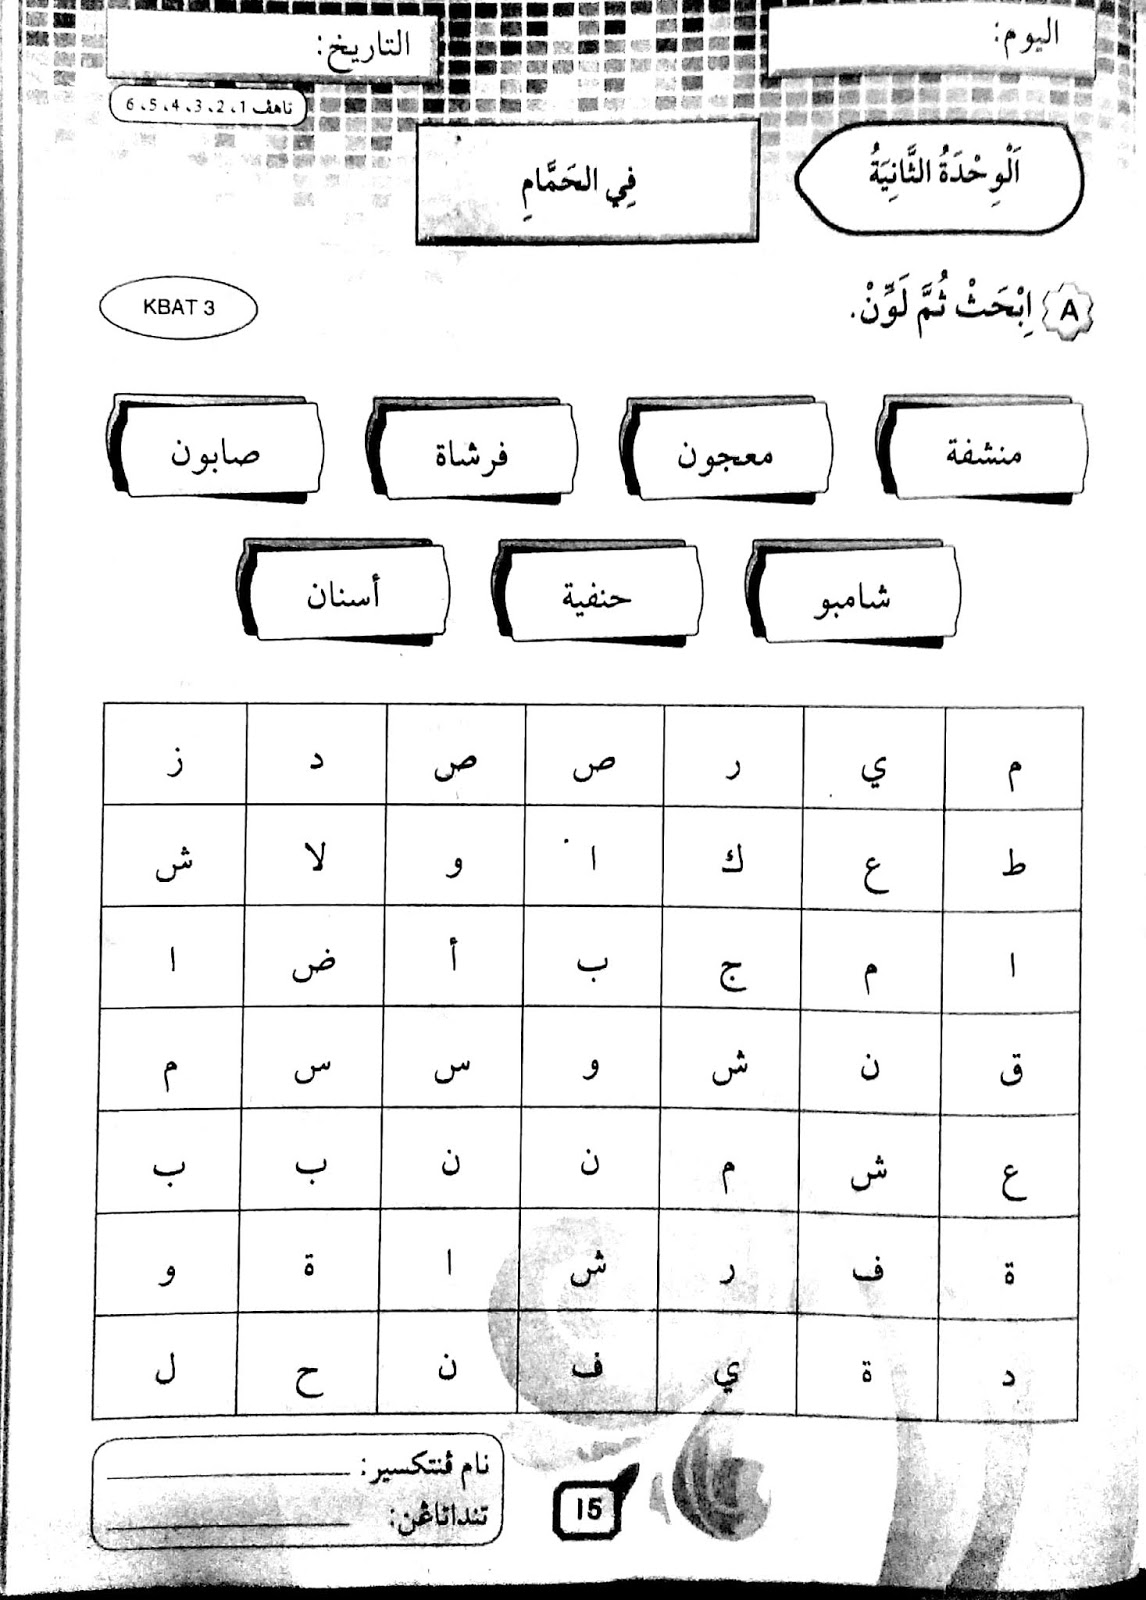 اليوم:
التاريخ:
ناهڤ 1، 2، 3، 4، 5، 6
اَلْوِحْدَةُ الثَّانِيَةُ
فِي الحَمَّامِ
A اِبْحَثْ ثُمَّ لَوِّنْ.
KBAT 3
منشفة معجون فرشاة صابون
شامبو حنفية أسنان
م ي ر ص ص د ز
ط ع ك ا و لا ش
ا م ج ب أ ض ا
ق ن ش و س س م
ع ش م ن ن ب ب
ة ف ر ش ا ة و
د ة ي ف ن ح ل
نام ڤنتكسير:
تنداتاڠن:
15